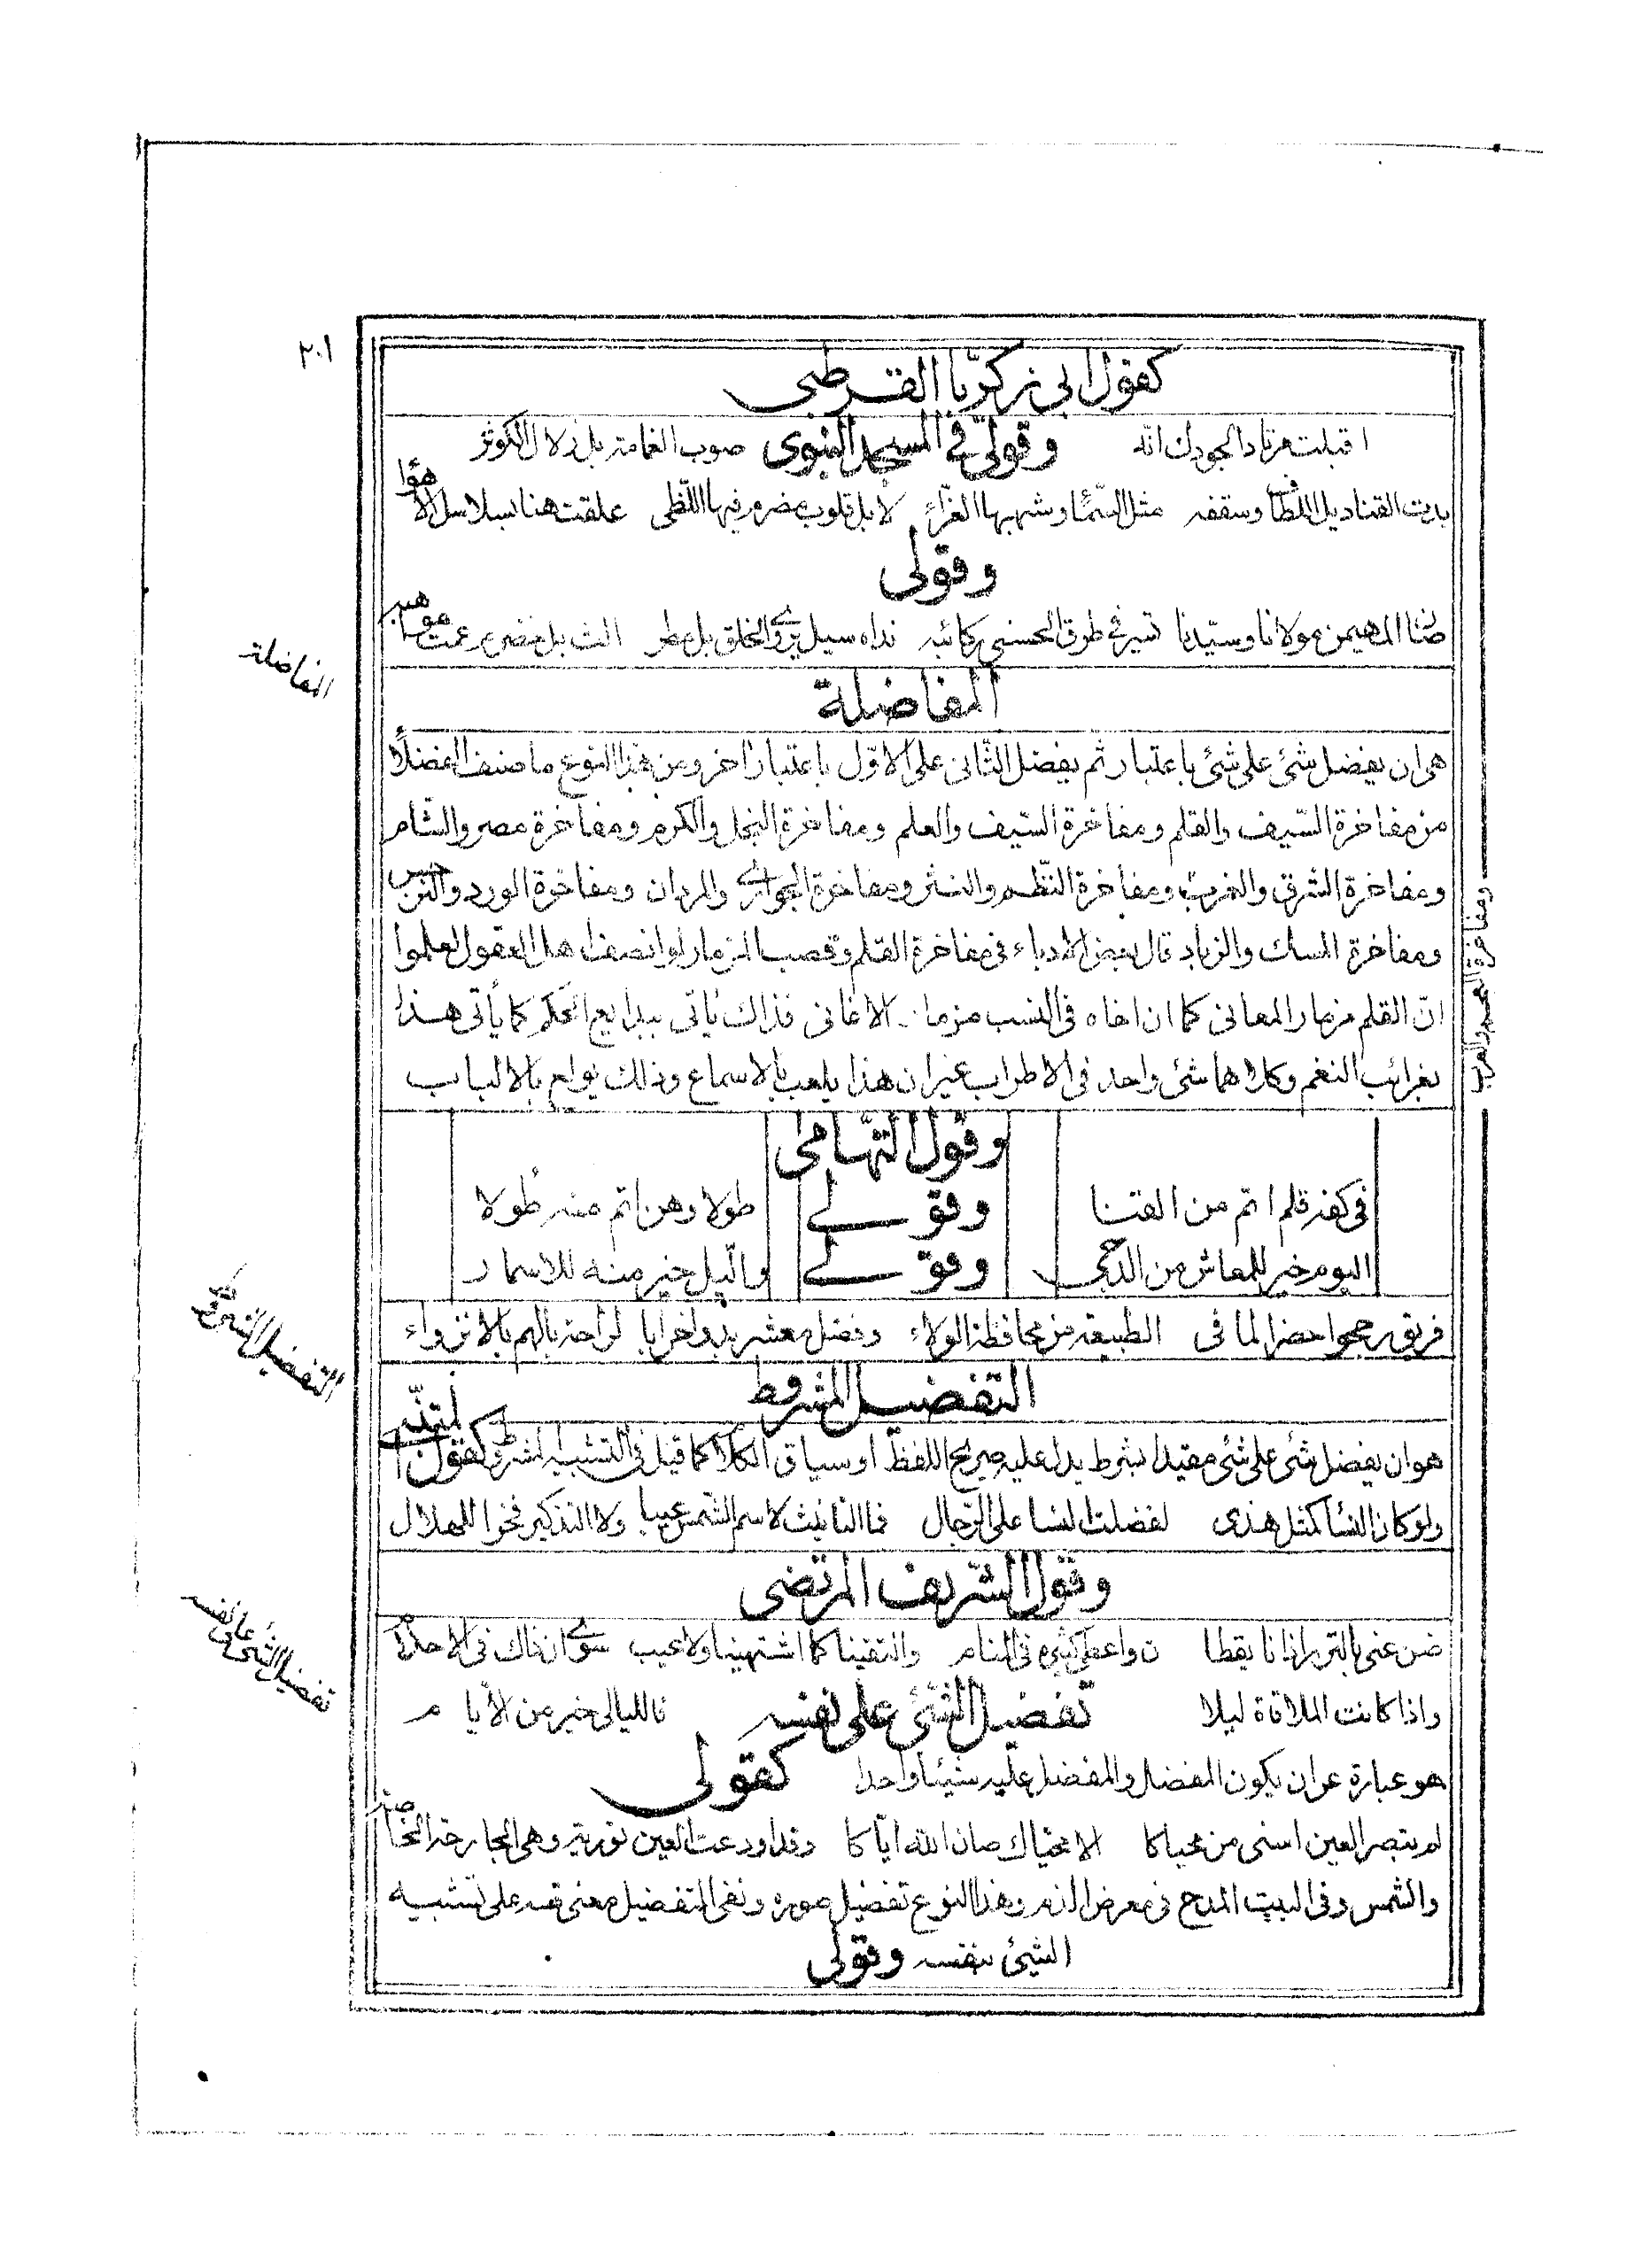 ٢٠١
كقول ابى زكريّا القرطبى
اقبلت مرتاد الجودك انّه وقولى فى المسجد النبوى صوب الغمامة بل زلال الكوثر
بدت القناديل اللطاف وسقفه مثل السّما وشهبها الغرّاء لا بل قلوب مضرم فيها اللّظى علقت هنا بسلاسل الاهواء
وقولى
المهيمن مولانا وسيّدنا تسير فى طوق الحسنى ركائبه نداه سيل يروّى الخلق بل مطر الث بل خضرم عمت مواهبه
المفاضلة
المفاضلة
هى ان يفضل شئ على شئ باعتبار ثم يفضل الثّانى على الاوّل باعتبار اخر ومن هذا النوع ما صنف الفضلا
من مفاخرة السّيف والقلم ومفاخرة السّيف والعلم ومفاخرة النخل والكرم ومفاخرة مصر والشّام
ومفاخرة الشرق والغرب ومفاخرة النّظم والنثر ومفاخرة الجوارى والمردان ومفاخرة الورد والنرجس
ومفاخرة العجم والعرب
ومفاخرة المسك والزباد قال بعض الادباء فى مفاخرة القلم وقصب المزمار لو انصف اهل العقول لعلموا
انّ القلم مزمار المعانى كما ان اخاه فى النسب مزمار الاغانى فذاك ياتى ببدايع الحكم كما يأتى هذا
بغرائب النغم وكلاهما شئ واحد فى الاطراب غير ان هذا يلعب بالاسماع وذلك يولع بالالباب
وقول التهامى
فى كفه قلم اتم من القنا وقولى طولا وهن اتم منه طولا
اليوم خير للمعاش من الدجى وقولى والّيل خير منه للاسمار
فريق رجحوا حضرا لما فى الطبيعة من محافظة الولاء وفضل معشر بدوا خرابا لراحة بالهم بالانزواء
التفضيل المشروط
التفضيل المشروط
هو ان يفضل شئ على شئ مقيدا بشرط يدل عليه صريح اللفظ او سياق الكلام كما قيل فى التشبيه المشروط كقول
ولو كان النسا كمثل هذى لفضلت النسا على الرّجال فما التانيث لاسم الشّمس عيبا ولا التذكير فخر للهلال
وقول الشريف المرتضى
ضن عنى بالنزر اذ انا يقظا ن واعطى كثيره فى المنام والتقينا كما اشتهينا ولا عيب سوى ان ذاك فى الاحلام
واذا كانت الملاقاة ليلا تفضيل الشئ على نفسه فالليالى خير من الأيام
تفضيل الشئ على نفسه
هو عبارة عن ان يكون المفضل والمفضل عليه شيئا واحدا كقولى
لم يبصر العين اسنى من محياكا الا محيّاك صان الله ايّاكا وقد اودعت العين تورية وهى الجارحة الخاصة
والشمس وفى البيت المدح فى معرض الذم وهذا النوع تفضيل صورة ونفى التفضيل معنى قسه على تشبيه
الشئ بنفسه وقولى